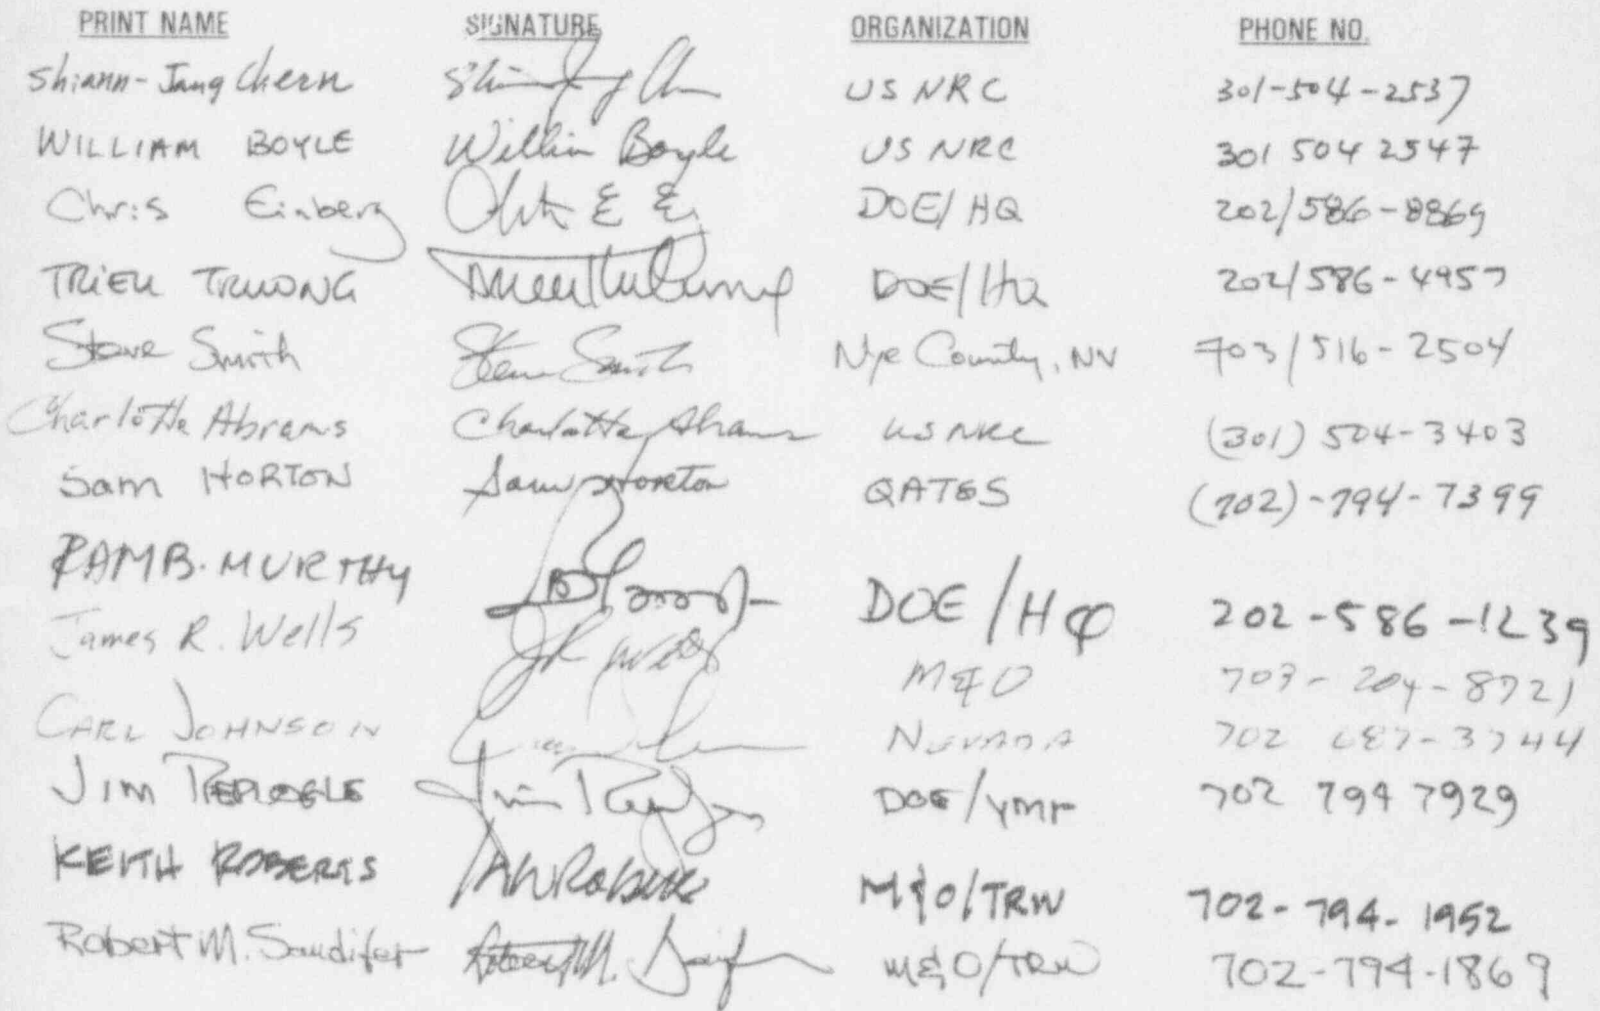 PRINT NAME SIGNATURE ORGANIZATION PHONE NO.
Shiann-Jang Chern US NRC 301-504-2537
WILLIAM BOYLE William Boyle US NRC 301 504 2547
Chris Einberg DOE/HQ 202/586-8869
TRIEU TRUONG DOE/HQ 202/586-4957
Steve Smith Steve Smith Nye County, NV 703/516-2504
Charlotte Abrams Charlotte Abrams US NRC (301) 504-3403
Sam HORTON Sam Horton QATSS (702)-794-7399
RAM B. MURTHY DOE/HQ 202-586-1239
James R. Wells JR Wells M&O 703-204-8721
CARL JOHNSON NEVADA 702 687-3744
JIM REPLOGLE DOE/YMP 702 794 7929
KEITH ROBERTS M&O/TRW 702-794-1952
Robert M. Sandifer Robert M. M&O/TRW 702-794-1869